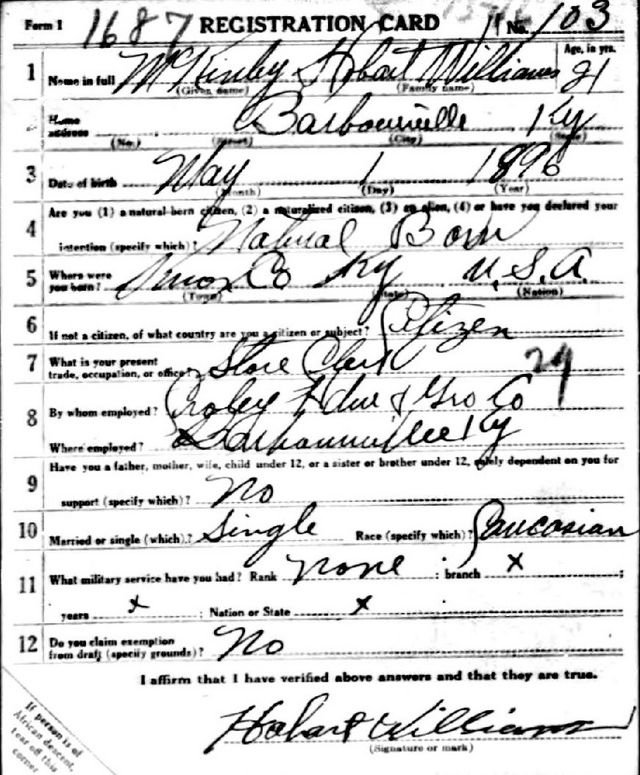 Form 1 1687 REGISTRATION CARD No. 103
1 Name in full McKinley Hobart Williams Age, in yrs. 21
(Given name) (Family name)
2 Home address Barbourville Ky
(No.) (Street) (City) (State)
3 Date of birth May 1 1896
(Month) (Day) (Year)
4 Are you (1) a natural-born citizen, (2) a naturalized citizen, (3) an alien, (4) or have you declared your
intention (specify which)? Natural Born
5 Where were you born? Knox Co Ky U.S.A.
(Town) (State) (Nation)
6 If not a citizen, of what country are you a citizen or subject? Citizen
7 What is your present trade, occupation, or office? Store Clerk 24
8 By whom employed? Croley Hdw & Gro Co
Where employed? Barbourville Ky
9 Have you a father, mother, wife, child under 12, or a sister or brother under 12, solely dependent on you for
support (specify which)? No
10 Married or single (which)? Single Race (specify which)? Caucasian
11 What military service have you had? Rank none ; branch x ;
years x ; Nation or State x
12 Do you claim exemption from draft (specify grounds)? No
I affirm that I have verified above answers and that they are true.
Hobart Williams
(Signature or mark)
If person is of
African descent,
tear off this
corner